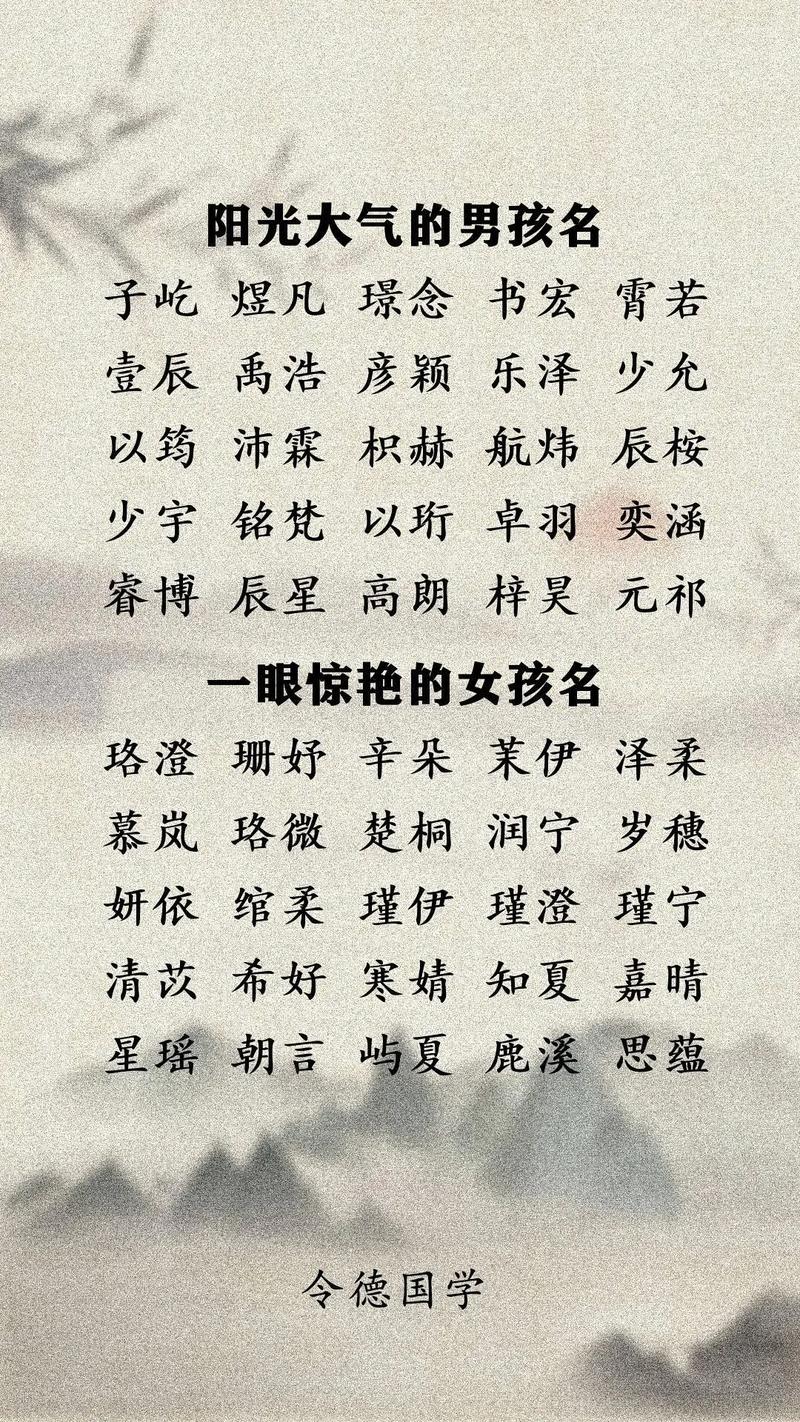 阳光大气的男孩名
子屹 煜凡 璟念 书宏 霄若
壹辰 禹浩 彦颖 乐泽 少允
以筠 沛霖 枳赫 航炜 辰桉
少宇 铭梵 以珩 卓羽 奕涵
睿博 辰星 高朗 梓昊 元祁
一眼惊艳的女孩名
珞澄 珊妤 辛朵 茉伊 泽柔
慕岚 珞微 楚桐 润宁 岁穗
妍依 绾柔 瑾伊 瑾澄 瑾宁
清苡 希好 寒婧 知夏 嘉晴
星瑶 朝言 屿夏 鹿溪 思蕴
令德国学